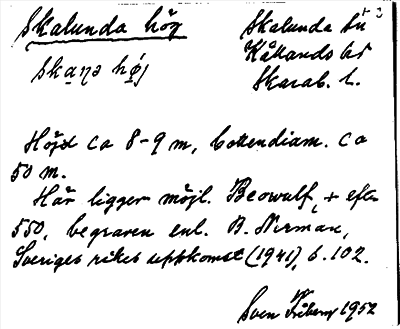 Skalunda hög
Skalunda sn
Kållands hd
skaŋə hǿj
Skarab. l.
Höjd ca 8-9 m, bottendiam. ca
50 m.
Här ligger möjl. Beowulf, + efter
550, begraven enl. B. Nerman,
Sveriges rikes uppkomst (1941), s. 102.
Sven Fröberg 1952